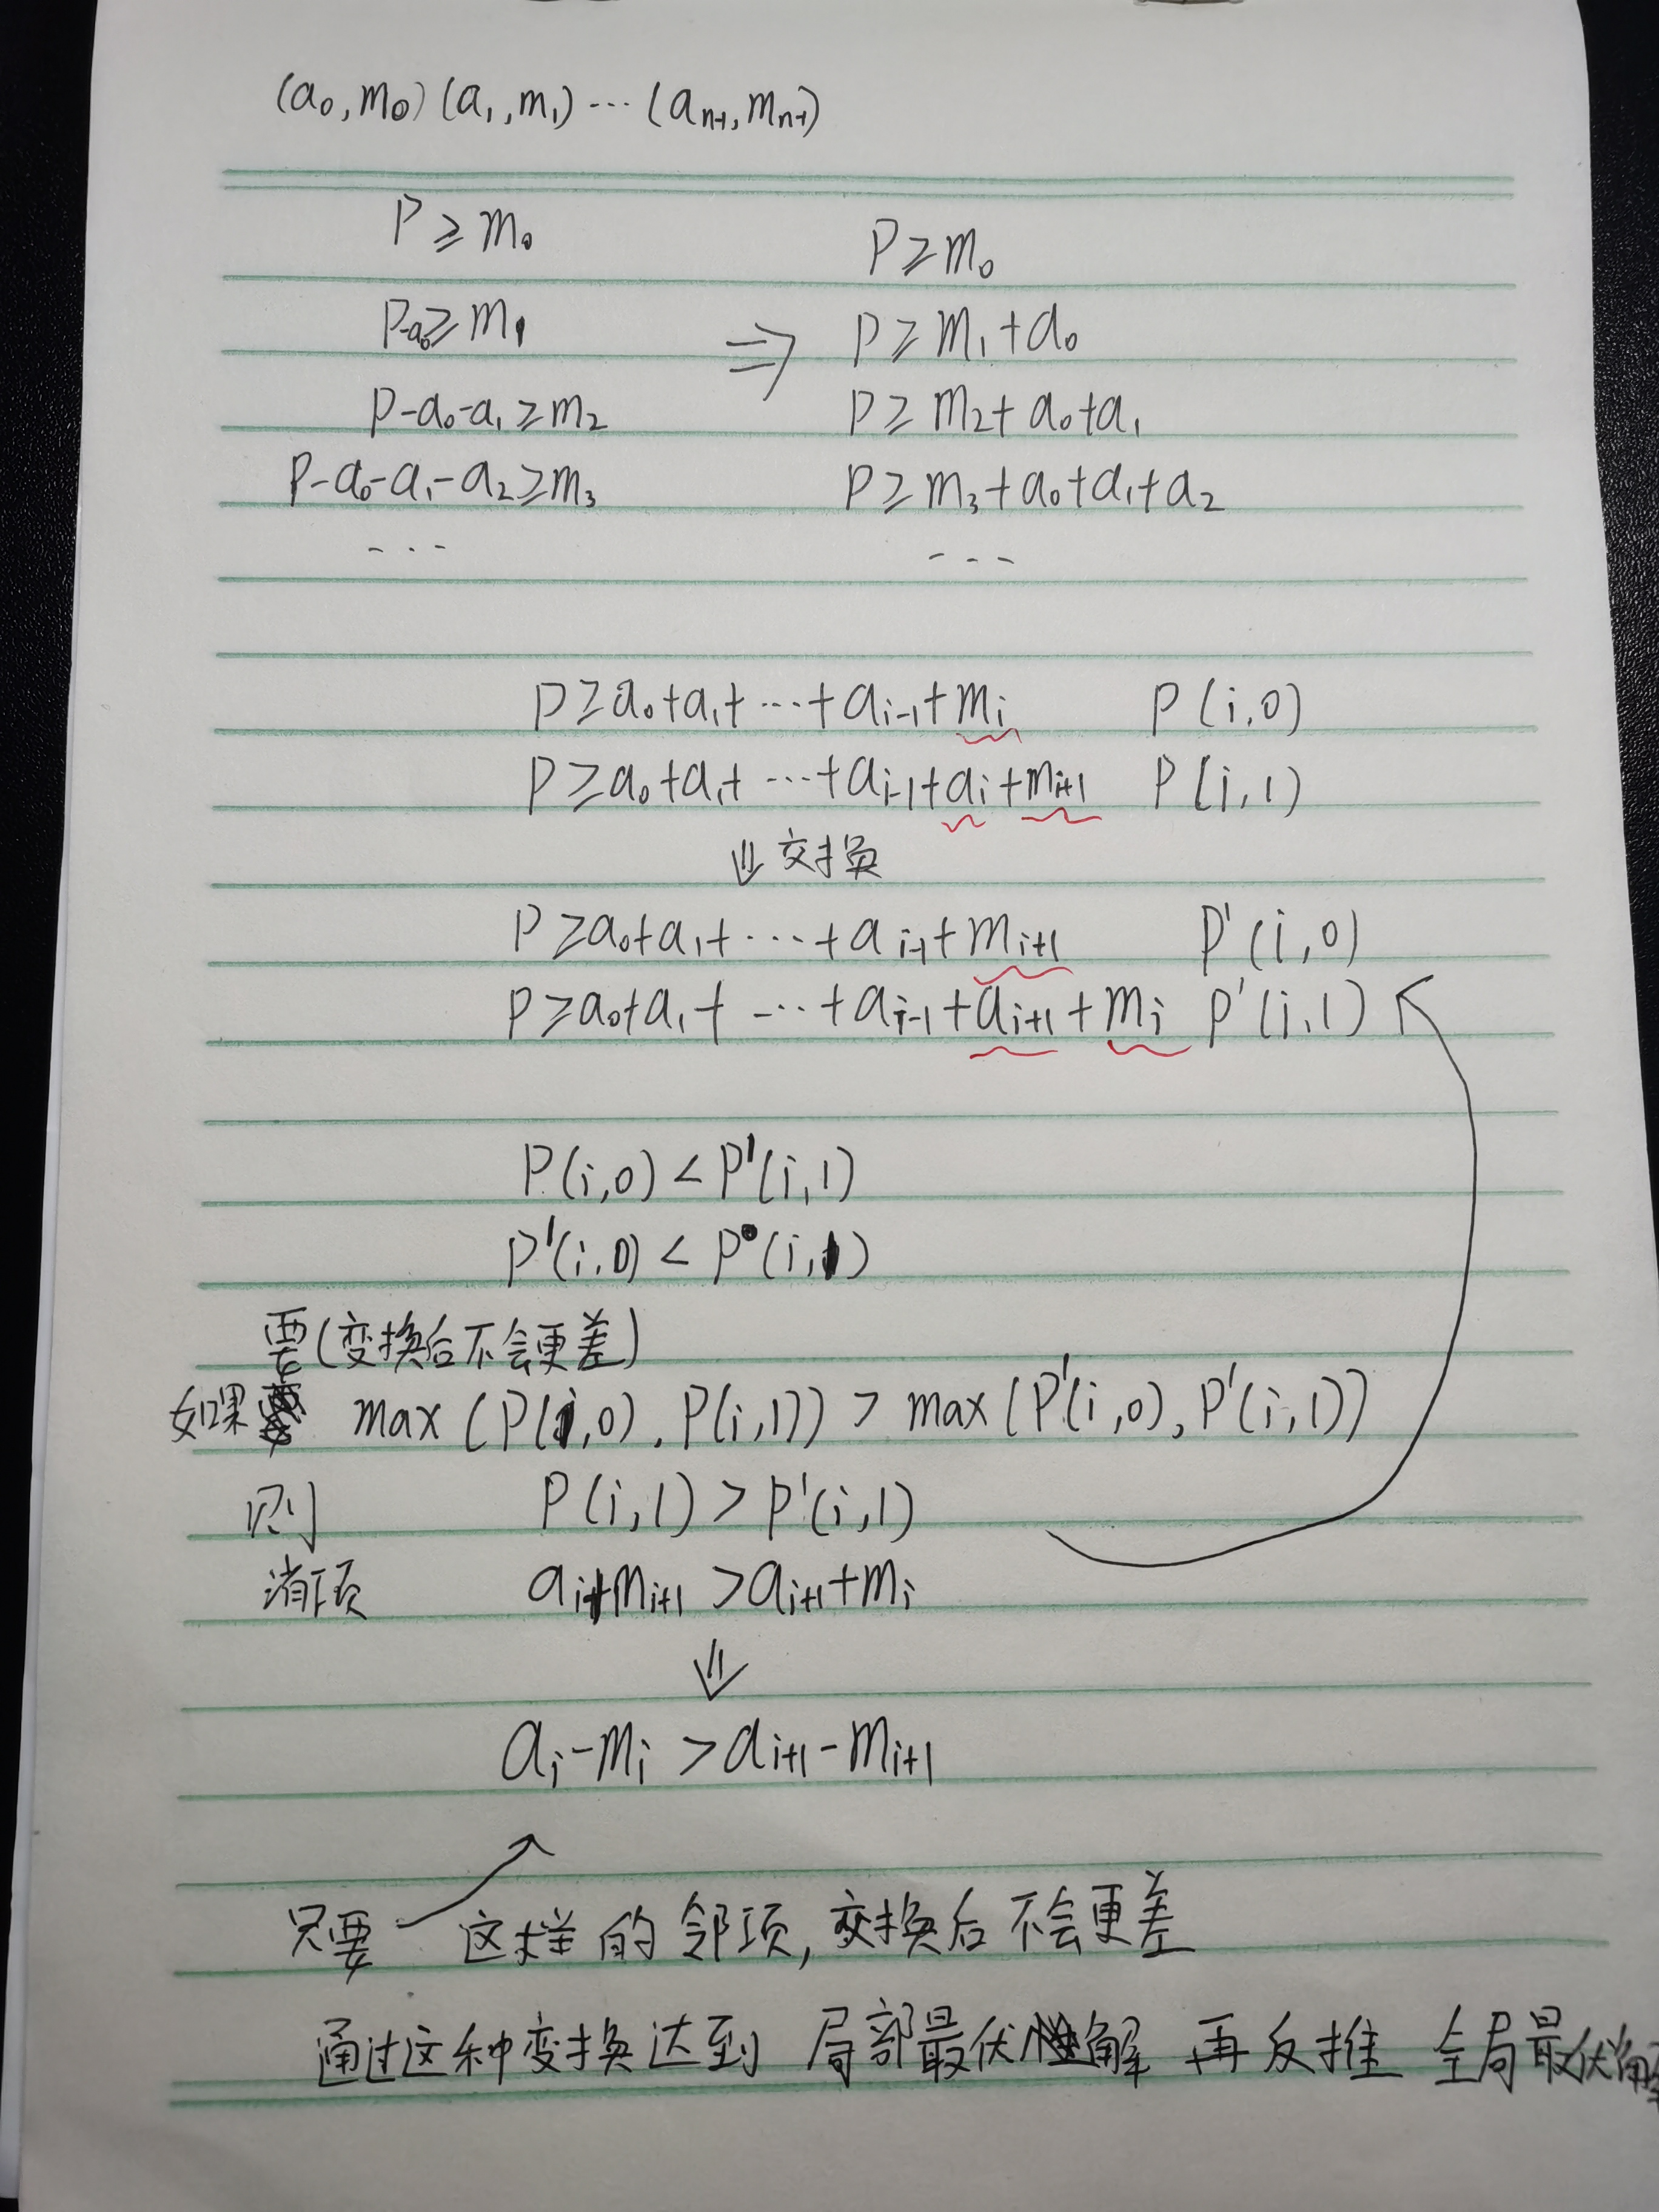 (a₀,m₀)(a₁,m₁)⋯(aₙ₋₁,mₙ₋₁)
P≥m₀ P≥m₀
P-a₀≥m₁ ⇒ P≥m₁+a₀
P-a₀-a₁≥m₂ P≥m₂+a₀+a₁
P-a₀-a₁-a₂≥m₃ P≥m₃+a₀+a₁+a₂
... ---
P≥a₀+a₁+⋯+aᵢ₋₁+mᵢ P(i,0)
P≥a₀+a₁+⋯+aᵢ₋₁+aᵢ+mᵢ₊₁ P(i,1)
⇓交换
P≥a₀+a₁+⋯+aᵢ₋₁+mᵢ₊₁ P'(i,0)
P≥a₀+a₁+⋯+aᵢ₋₁+aᵢ₊₁+mᵢ P'(i,1)
P(i,0)<P'(i,1)
P'(i,0)<P(i,1)
要(变换后不会更差)
如果 max(P(i,0),P(i,1))>max(P'(i,0),P'(i,1))
则 P(i,1)>P'(i,1)
消项 aᵢ+mᵢ₊₁>aᵢ₊₁+mᵢ
⇓
aᵢ-mᵢ>aᵢ₊₁-mᵢ₊₁
只要 这样的邻项,交换后不会更差
通过这种变换达到 局部最优解 再反推 全局最优解